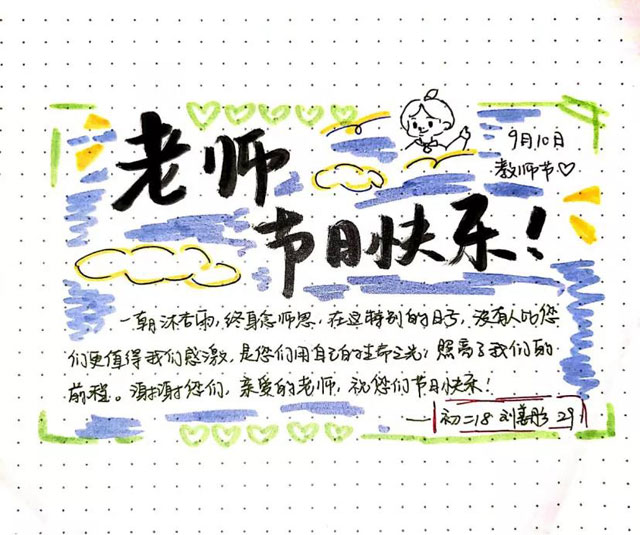 老师
节日快乐！
9月10日
教师节♡
一朝沐杏雨,终身念师恩,在这特别的日子,没有人比您
们更值得我们感激,是您们用自己的生命之光,照亮了我们的
前程。谢谢您们,亲爱的老师,祝您们节日快乐!
— 初二18 刘善彤 29